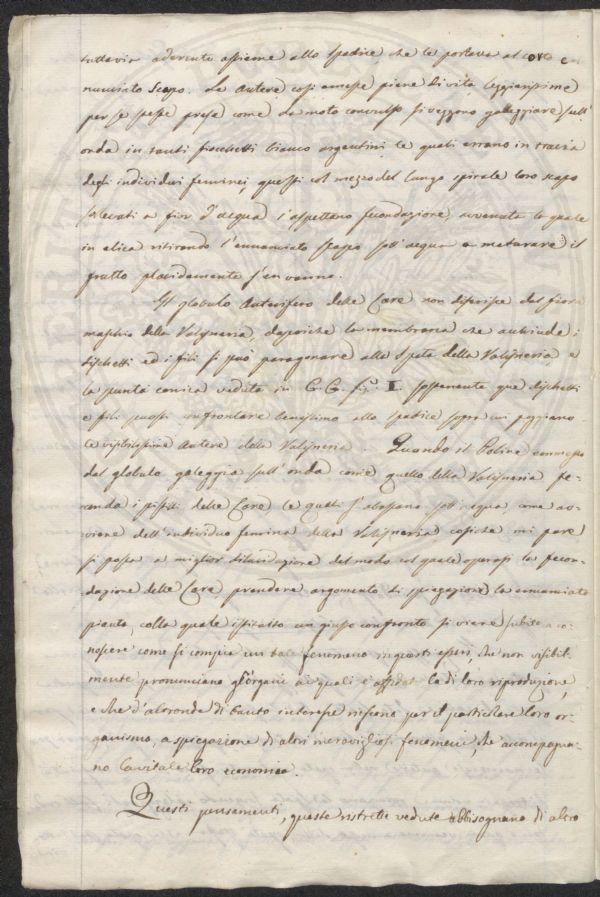 tuttavia aderente assieme allo spadice, che le portava al
nunciato scapo. Le Antere così emesse piene di vita leggierissime
per se stesse prese come da moto convulso si veggono galeggiare sull'
onda in tanti fiocchetti bianco argentini le quali errano in traccia
degli individui feminei questi col mezzo del lungo spirale loro scapo
sollevati a fior d'acqua l'aspettano fecondazione, avvenuta la quale
in elica ritirando l'annunciato scapo sott'acqua a maturare il
frutto placidamente s'en vanno.
Il globulo Anterifero delle Care non diferisse dal fiore
maschio della Valisneria, dapoiche la membrana che anchiude i
dischetti ed i fili si può paragonare alla Spata della Valisneria, e
la punta conica veduta in C. C. fig.ª I. sostenente que' dischetti
e fili puossi confrontare benissimo allo spadice sopra cui poggiano
le visibilissime Antere della Valisneria. Quando il Poline emesso
dal globulo galeggia sull'onda come quello della Valisneria fe-
conda i pistili delle Care le quali s'abassano sott'acqua come av-
viene dell'individuo femina della Valisneria cosiche mi pare
si possa a miglior dilucidazione del modo col quale operasi la fecon-
dazione delle Care prendere argomento di spiegazione la annunciata
pianta, colla quale istituito un giusto confronto si viene subito a co-
noscere come si compia un tale fenomeno in questi esseri, che non visibil-
mente pronunciano gl'organi ai quali è affidat la di loro riproduzione,
e che d'altronde di tanto interesse riescono per il particolare loro or-
ganismo, a spiegazione di altri meravigliosi fenomeni, che accompagna-
no la vitale loro economia.
Questi pensamenti, queste ristrette vedute abbisognano di altro